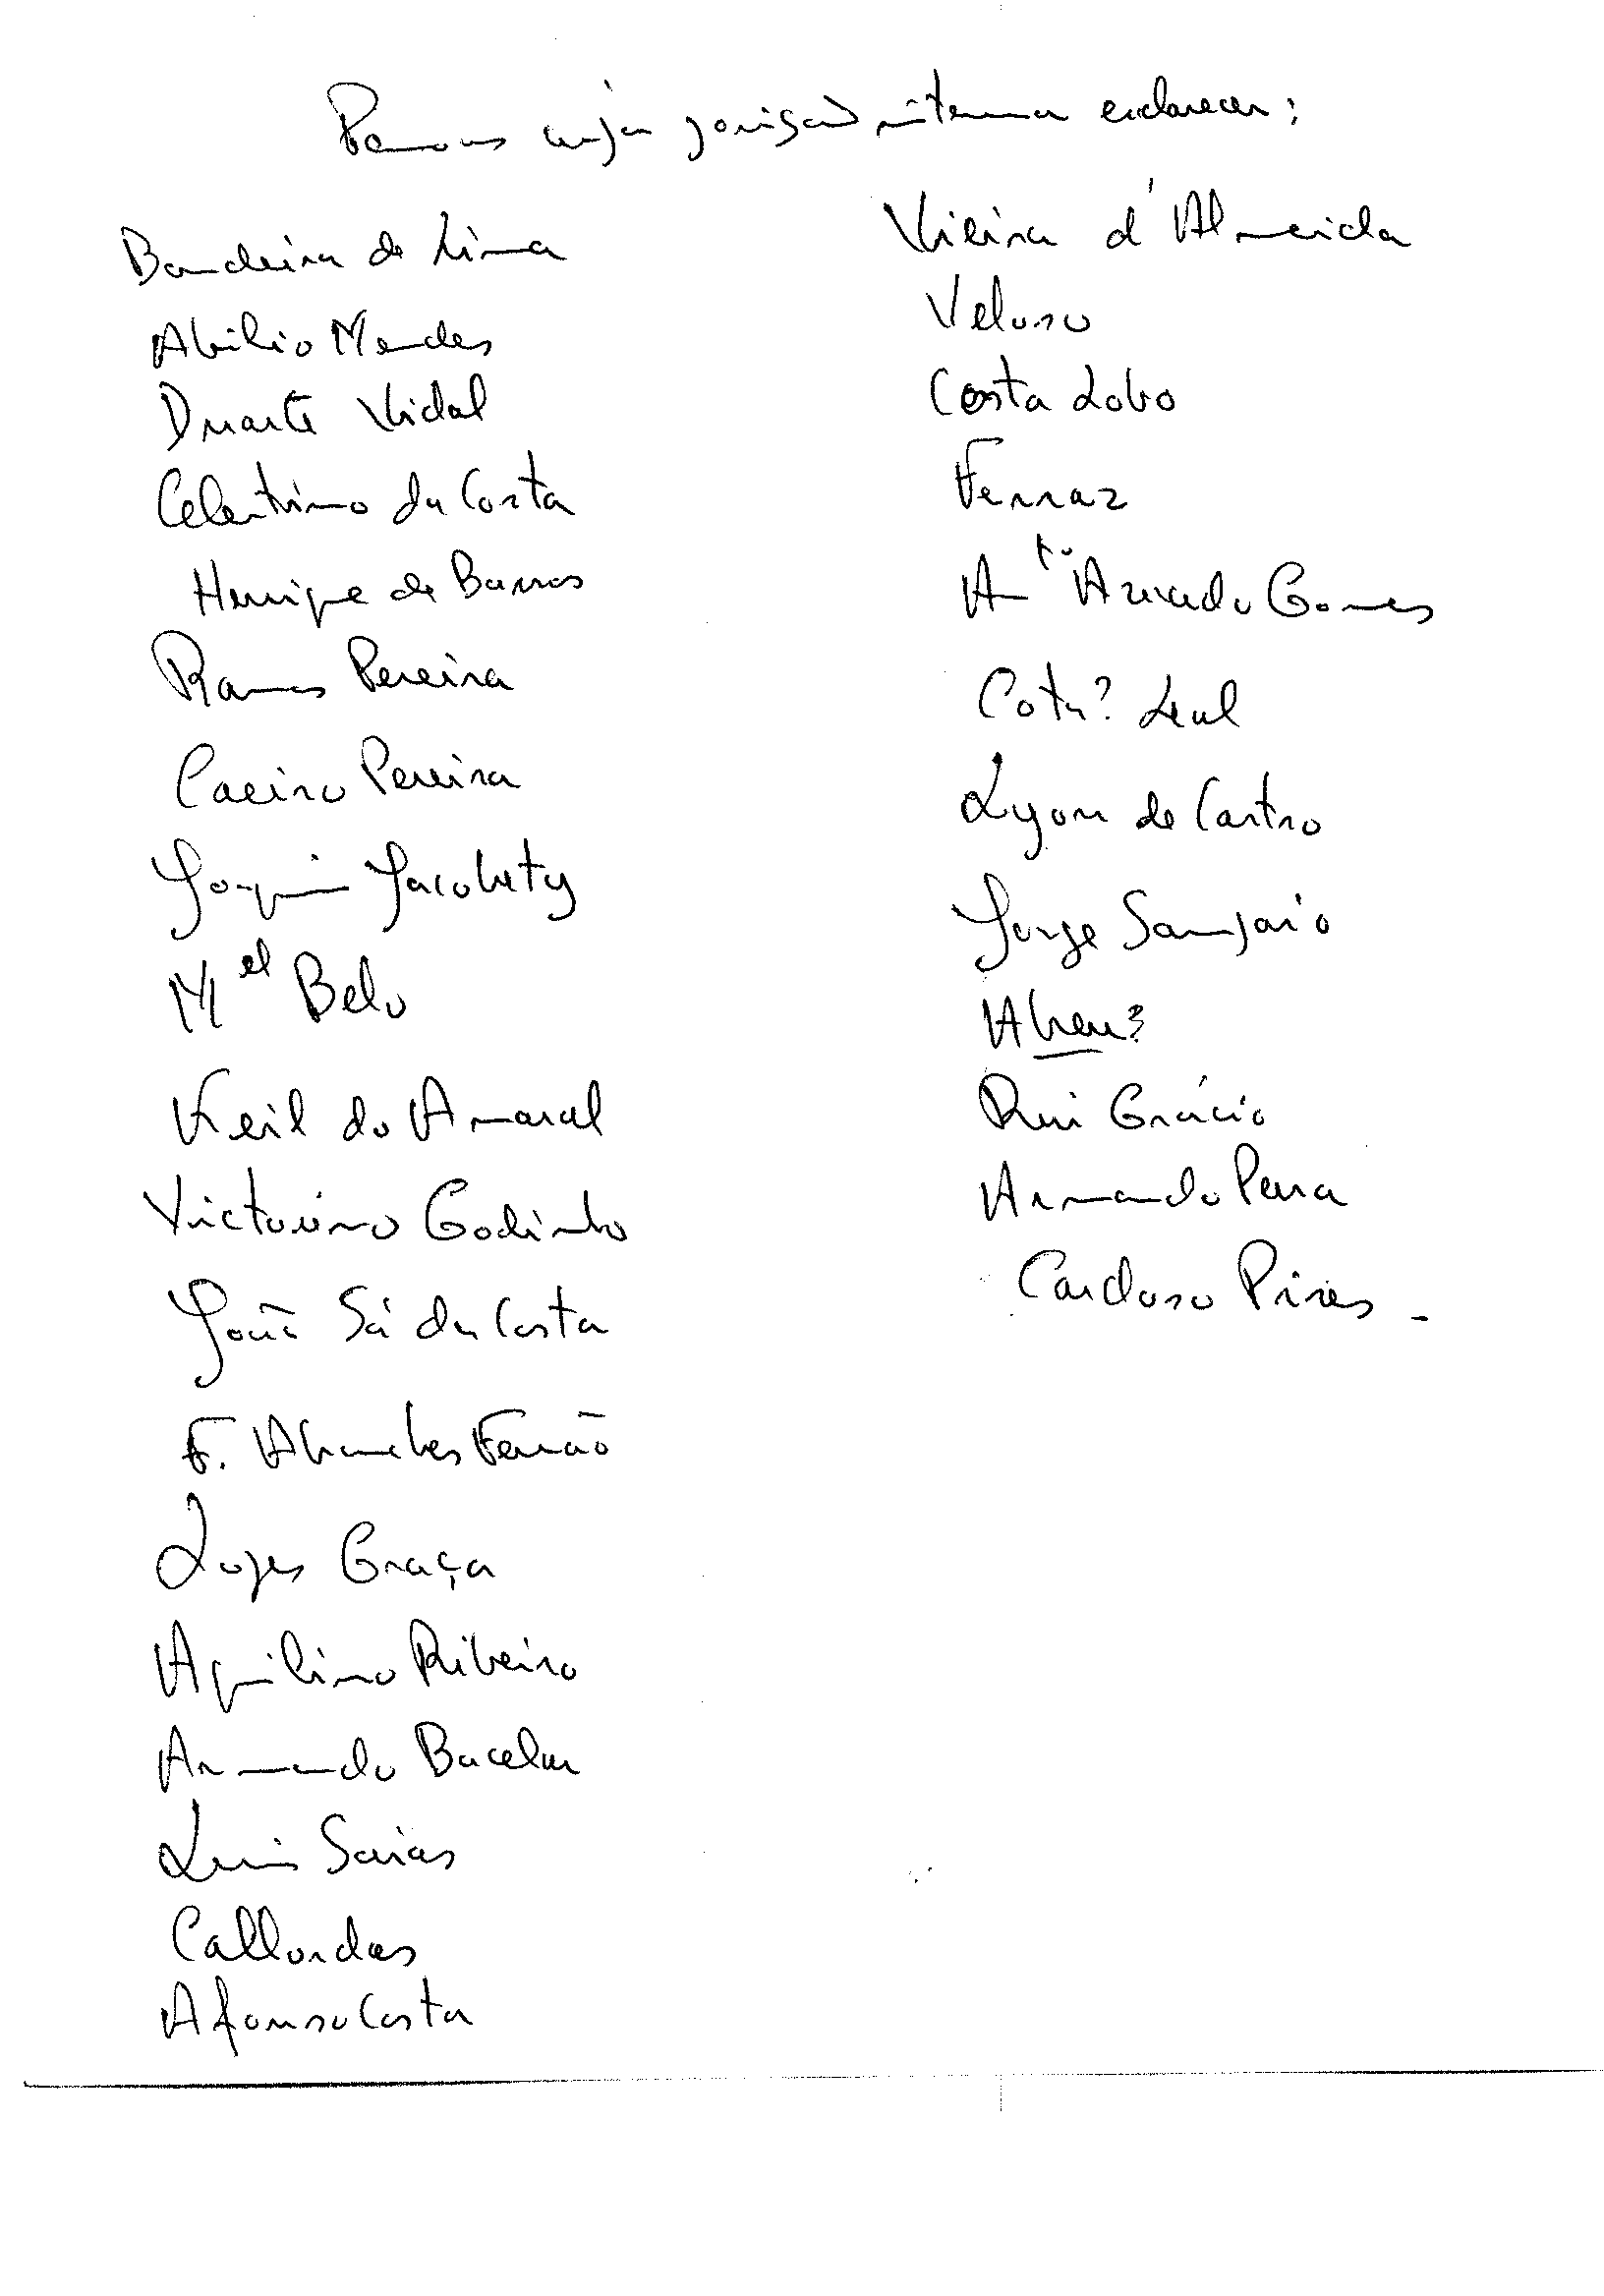 Pessoas cuja posição interessa esclarecer:
Bandeira de Lima
Abilio Mendes
Duarte Vidal
Celestino da Costa
Henrique de Barros
Ramos Pereira
Caeiro Pereira
Joaquim Jacobety
Mel Belo
Keil do Amaral
Victorino Godinho
João Sá da Costa
F. Abranches Ferrão
Lopes Graça
Aquilino Ribeiro
Armando Bacelar
Luis Saias
Callondas
Afonso Costa
Vieira d'Almeida
Veloso
Costa Lobo
Ferraz
Anto Azevedo Gomes
Cota? Leal
Lyon de Castro
Jorge Sampaio
Abreu?
Rui Grácio
Armando
Cardoso Pires -